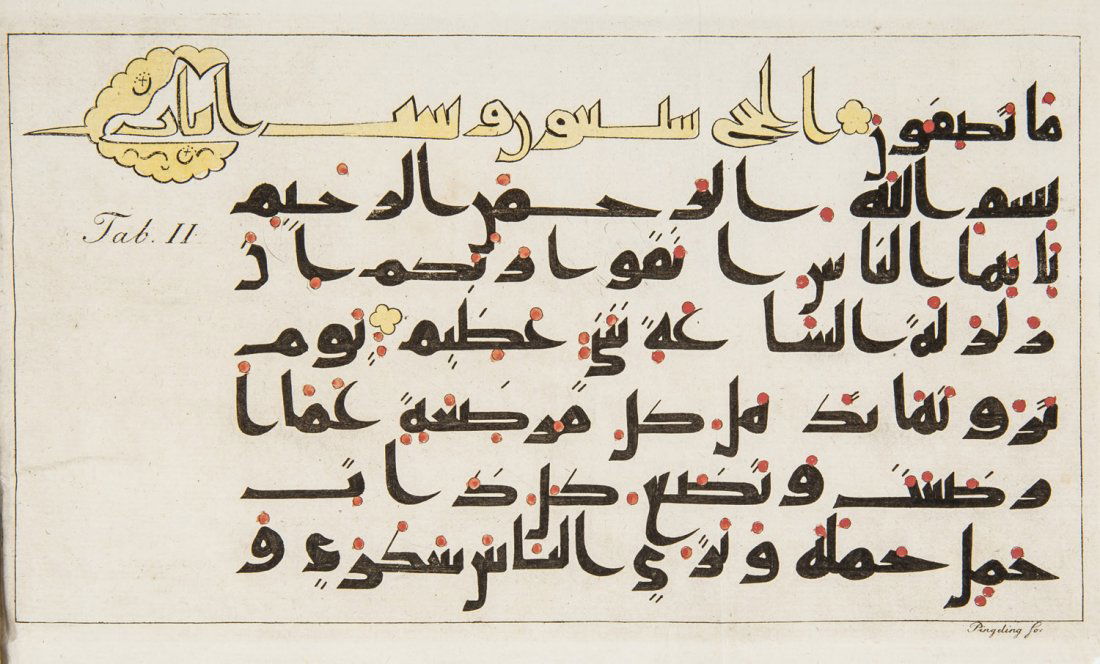 ما تصفون الحج سبعون وست ايات
بسم الله الرحمن الرحيم
Tab. II
يايها الناس اتقوا ربكم ان
زلزلة الساعة شي عظيم يوم
ترونها تذهل كل مرضعة عما ا
رضعت وتضع كل ذات
حمل حملها وترى الناس سكرى و
Pingeling sc: